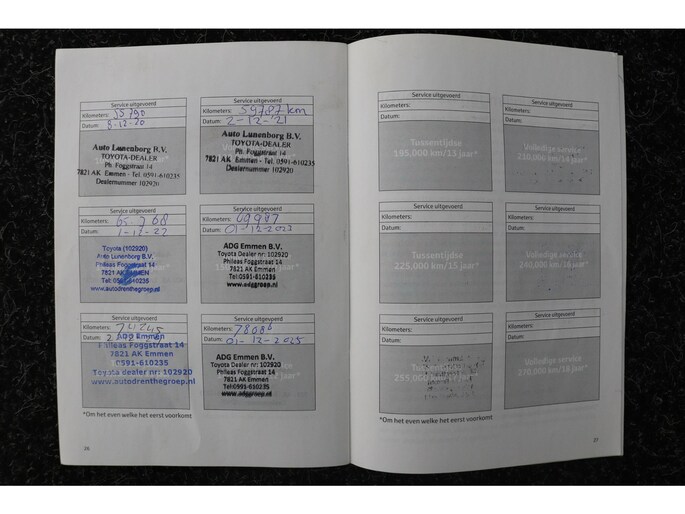 Service uitgevoerd
Kilometers: 55790
Datum: 8-12-20
Auto Lunenborg B.V.
TOYOTA-DEALER
Ph. Foggstraat 14
7821 AK Emmen - Tel. 0591-610235
Dealernummer 102920
Service uitgevoerd
Kilometers: 59787 km
Datum: 2-12-'21
Auto Lunenborg B.V.
TOYOTA-DEALER
Ph. Foggstraat 14
7821 AK Emmen - Tel. 0591-610235
Dealernummer 102920
Service uitgevoerd
Kilometers:
Datum: 1-12-22
Toyota (102920)
Auto Lunenborg B.V.
Phileas Foggstraat 14
7821 AK EMMEN
Tel: 0591-610235
www.autodrenthegroep.nl
Service uitgevoerd
Kilometers: 69987
Datum: 01-12-2023
ADG Emmen B.V.
Toyota Dealer nr: 102920
Phileas Foggstraat 14
7821 AK Emmen
Tel:0591-610235
www.adggroep.nl
Service uitgevoerd
Kilometers: 74245
Datum:
ADG Emmen
Phileas Foggstraat 14
7821 AK Emmen
0591-610235
Toyota dealer nr: 102920
www.autodrenthegroep.nl
Service uitgevoerd
Kilometers: 78086
Datum: 01-12-2025
ADG Emmen B.V.
Toyota Dealer nr: 102920
Phileas Foggstraat 14
7821 AK Emmen
Tel:0591-610235
www.adggroep.nl
*Om het even welke het eerst voorkomt
26
Service uitgevoerd
Kilometers:
Datum:
Tussentijdse
195,000 km/13 jaar*
Service uitgevoerd
Kilometers:
Datum:
Volledige service
210,000 km/14 jaar*
Service uitgevoerd
Kilometers:
Datum:
Tussentijdse
225,000 km/15 jaar*
Service uitgevoerd
Kilometers:
Datum:
Volledige service
240,000 km/16 jaar*
Service uitgevoerd
Kilometers:
Datum:
255,000
Service uitgevoerd
Kilometers:
Datum:
Volledige service
270,000 km/18 jaar*
*Om het even welke het eerst voorkomt
27